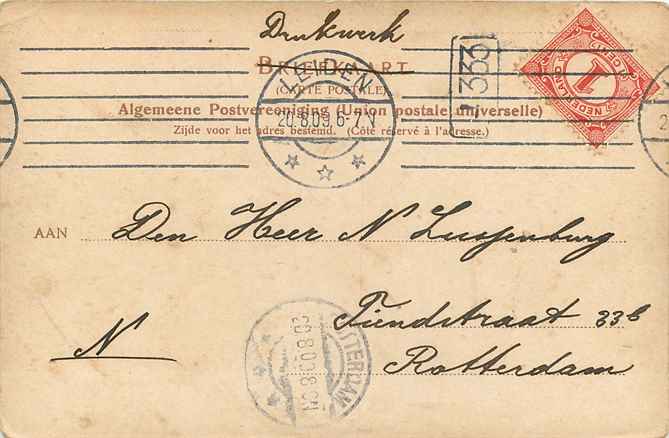 Drukwerk
BRIEFKAART
(CARTE POSTALE)
Algemeene Postvereeniging (Union postale universelle)
Zijde voor het adres bestemd. (Côté réservé à l'adresse.)
LEIDEN
20.8.09.6-7.V
333
1 CENT
NEDERLAND
AAN Den Heer N Lussenburg
Tiendstraat 33b
N Rotterdam